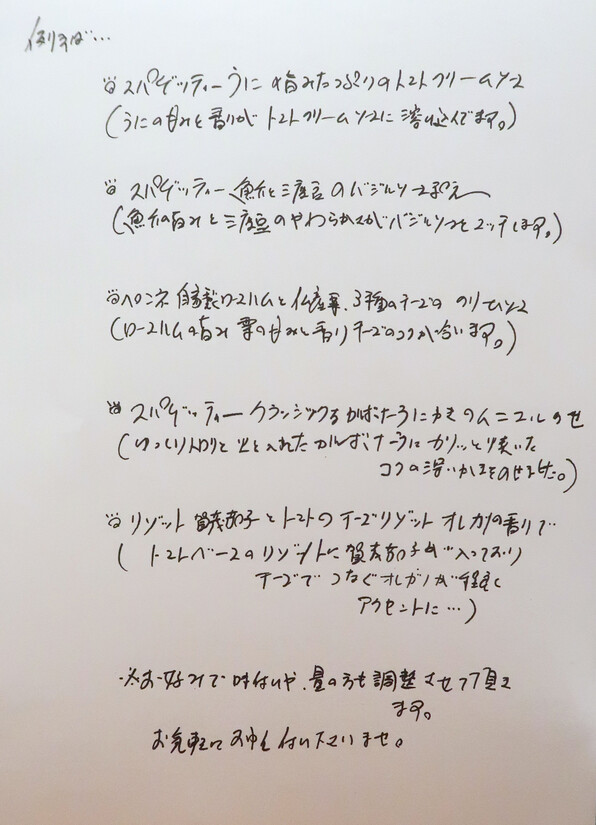 例えば…
スパゲッティー うに 旨みたっぷりのトマトクリームソース
(うにの甘みと香りが トマトクリームソースに溶け込んでます。)
スパゲッティー 魚介と三度豆のバジルソース和え
(魚介の旨みと三度豆のやわらかさがバジルソースとマッチします。)
ペンネ 自家製ロースハムと 3種のチーズの クリームソース
(ロースハムの旨み 栗の甘みと香り チーズのコクが合います。)
スパゲッティー クラシックなかるぼなーらにかきのムニエルのせ
(ゆっくりトロリと火を入れたカルボナーラにカリッと焼いた
コクの深いかきをのせました。)
リゾット 賀茂茄子とトマトのチーズリゾット オレガノの香りで
(トマトベースのリゾットに賀茂茄子が入っており
チーズでつなぐオレガノが程良く
アクセントに…)
※お好みで味付けや、量の方も調整させて頂き
ます。
お気軽にお申し付け下さいませ。